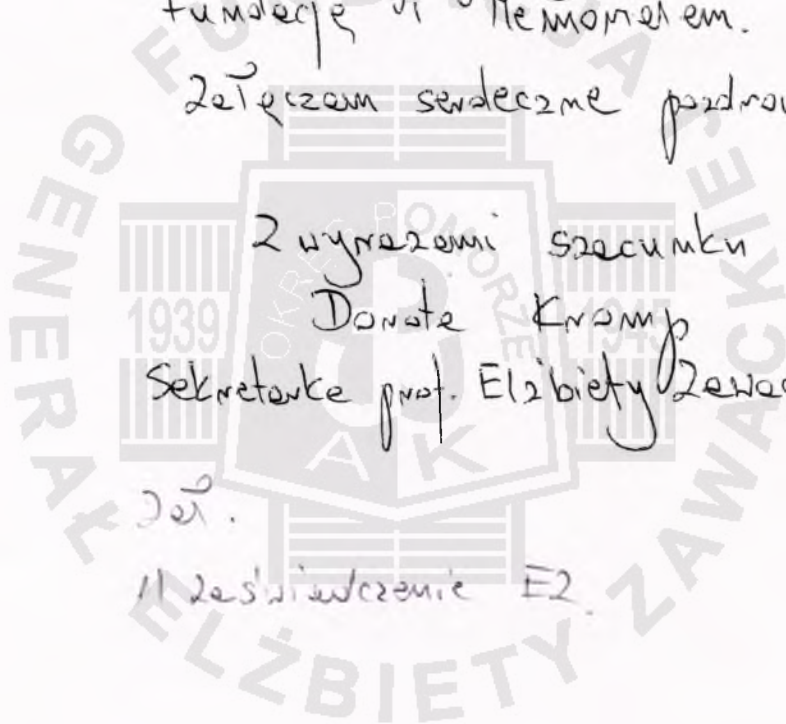 Fundację i Memoriałem.
Załączam serdeczne pozdrow
Z wyrazami szacunku
Dorota Kromp
Sekretarka prof. Elżbiety Zawac
Zał.
1/ zaświadczenie EZ.
FUNDACJA GENERAŁ ELŻBIETY ZAWACKIEJ
OKRĘG POMORZE
1939 1945
AK